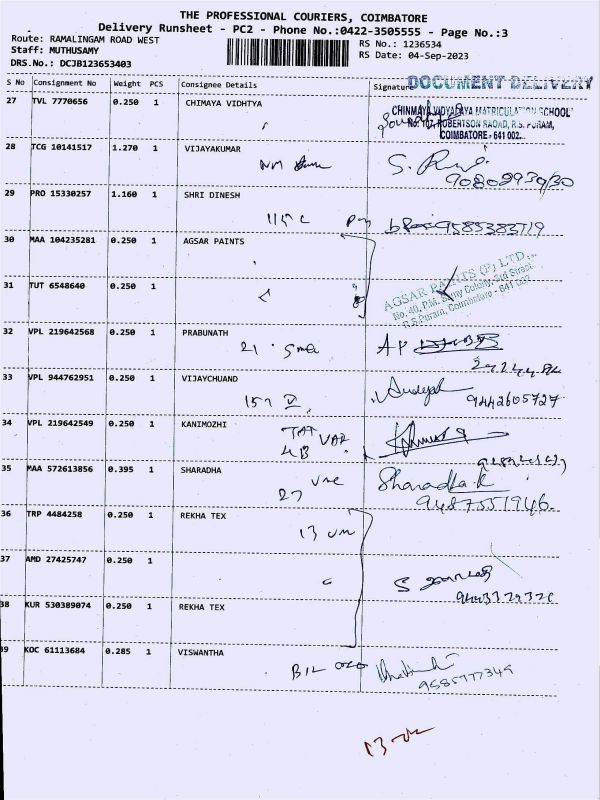 THE PROFESSIONAL COURIERS, COIMBATORE
Delivery Runsheet - PC2 - Phone No.:0422-3505555 - Page No.:3
Route: RAMALINGAM ROAD WEST
RS No.: 1236534
Staff: MUTHUSAMY
RS Date: 04-Sep-2023
DRS.No.: DCJB123653403
S No Consignment No Weight PCS Consignee Details Signature
DOCUMENT DELIVERY
27 TVL 7770656 0.250 1 CHIMAYA VIDHTYA
CHINMAYA VIDYALAYA MATRICULATION SCHOOL
No: 107, ROBERTSON RAOAD, R.S. PURAM,
COIMBATORE - 641 002
28 TCG 10141517 1.270 1 VIJAYAKUMAR
29 PRO 15330257 1.160 1 SHRI DINESH
30 MAA 104235281 0.250 1 AGSAR PAINTS
31 TUT 6548640 0.250 1
AGSAR PAINTS (P) LTD.,
No. 40, P.M. Samy Colony, 3rd Street
R.S Puram, Coimbatore - 641 002
32 VPL 219642568 0.250 1 PRABUNATH
21
33 VPL 944762951 0.250 1 VIJAYCHUAND
9442605727
34 VPL 219642549 0.250 1 KANIMOZHI
TAT
4B
35 MAA 572613856 0.395 1 SHARADHA
27
Sharadha.R
9487551946
36 TRP 4484258 0.250 1 REKHA TEX
13
37 AMD 27425747 0.250 1
38 KUR 530389074 0.250 1 REKHA TEX
39 KOC 61113684 0.285 1 VISWANTHA
9585777349